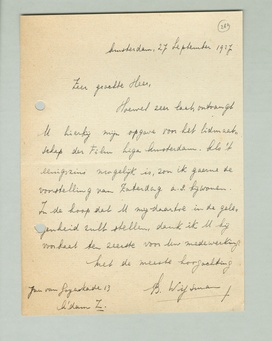 283
Amsterdam, 27 September 1927
Zeer geachte Heer,
Hoewel zeer laat, ontvangt
U hierbij mijn opgave voor het lidmaat-
schap der Film Liga Amsterdam. Als 't
eenigszins mogelijk is, zou ik gaarne de
voorstelling van Zaterdag a.s. bijwonen.
In de hoop dat U mij daartoe in de gele-
genheid zult stellen, dank ik U bij
voorbaat ten zeerste voor Uw medewerking
Met de meeste hoogachting
Jan van Goyenkade 13
A'dam Z.